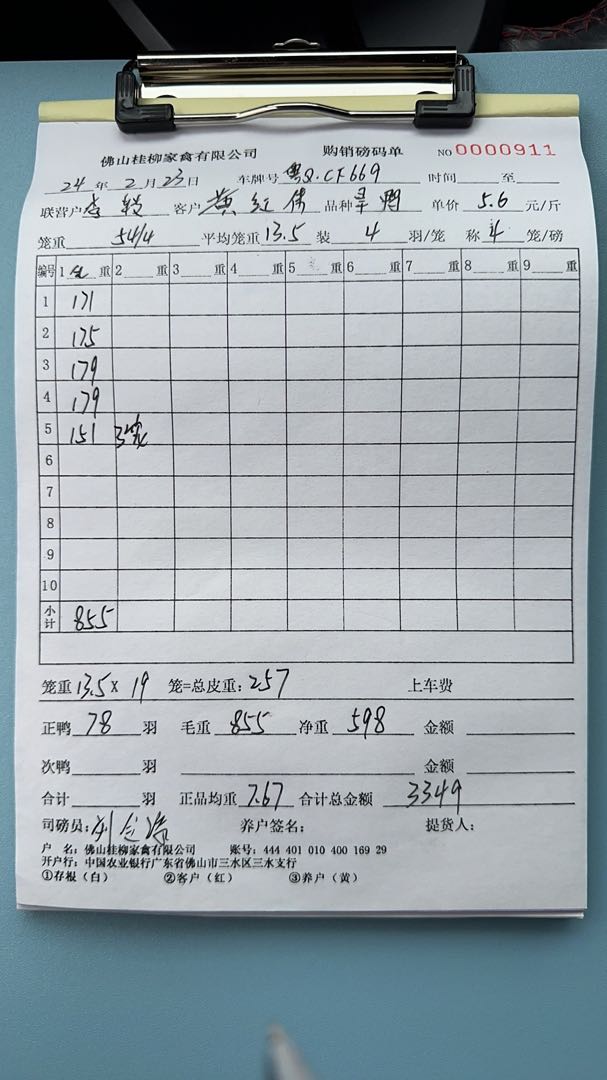 佛山桂柳家禽有限公司 购销磅码单 NO 0000911
24 年 2 月 23 日 车牌号 粤Q.CF669 时间 至
联营户 客户 黄红伟 品种 旱鸭 单价 5.6 元/斤
笼重 54/4 平均笼重 13.5 装 4 羽/笼 称 4 笼/磅
编号 1 重 2 重 3 重 4 重 5 重 6 重 7 重 8 重 9 重
1 171
2 175
3 179
4 179
5 151 3笼
6
7
8
9
10
小计 855
笼重 13.5 x 19 笼=总皮重: 257 上车费
正鸭 78 羽 毛重 855 净重 598 金额
次鸭 羽 金额
合计 羽 正品均重 7.67 合计总金额 3349
司磅员: 养户签名: 提货人:
户 名: 佛山桂柳家禽有限公司 账号: 444 401 010 400 169 29
开户行: 中国农业银行广东省佛山市三水区三水支行
①存根（白） ②客户（红） ③养户（黄）